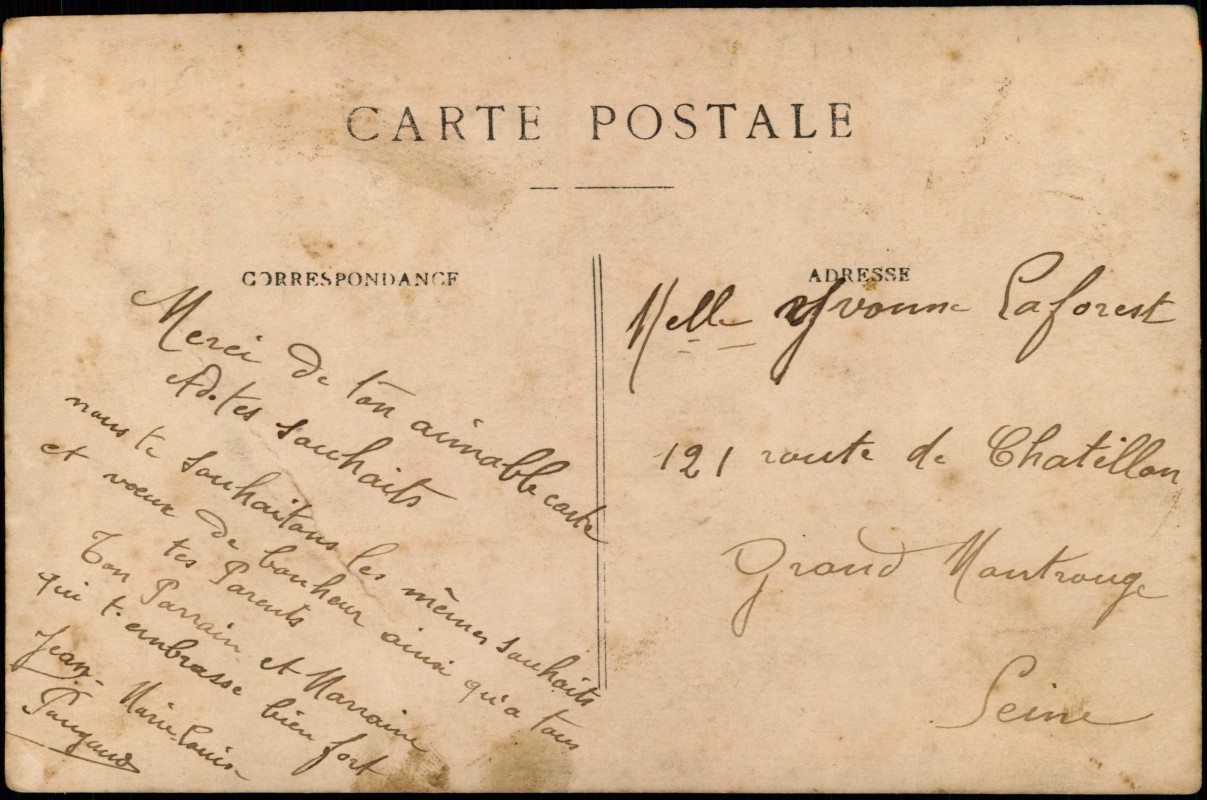 CARTE POSTALE
CORRESPONDANCE
Merci de ton aimable carte
et de tes souhaits
nous te souhaitons les mêmes souhaits
et voeux de bonheur ainsi qu'a tous
tes Parents
Ton Parrain et Marraine
qui t'embrasse bien fort
Jean-Marie Louise
ADRESSE
Melle Yvonne Laforest
121 route de Chatillon
Grand Montrouge
Seine